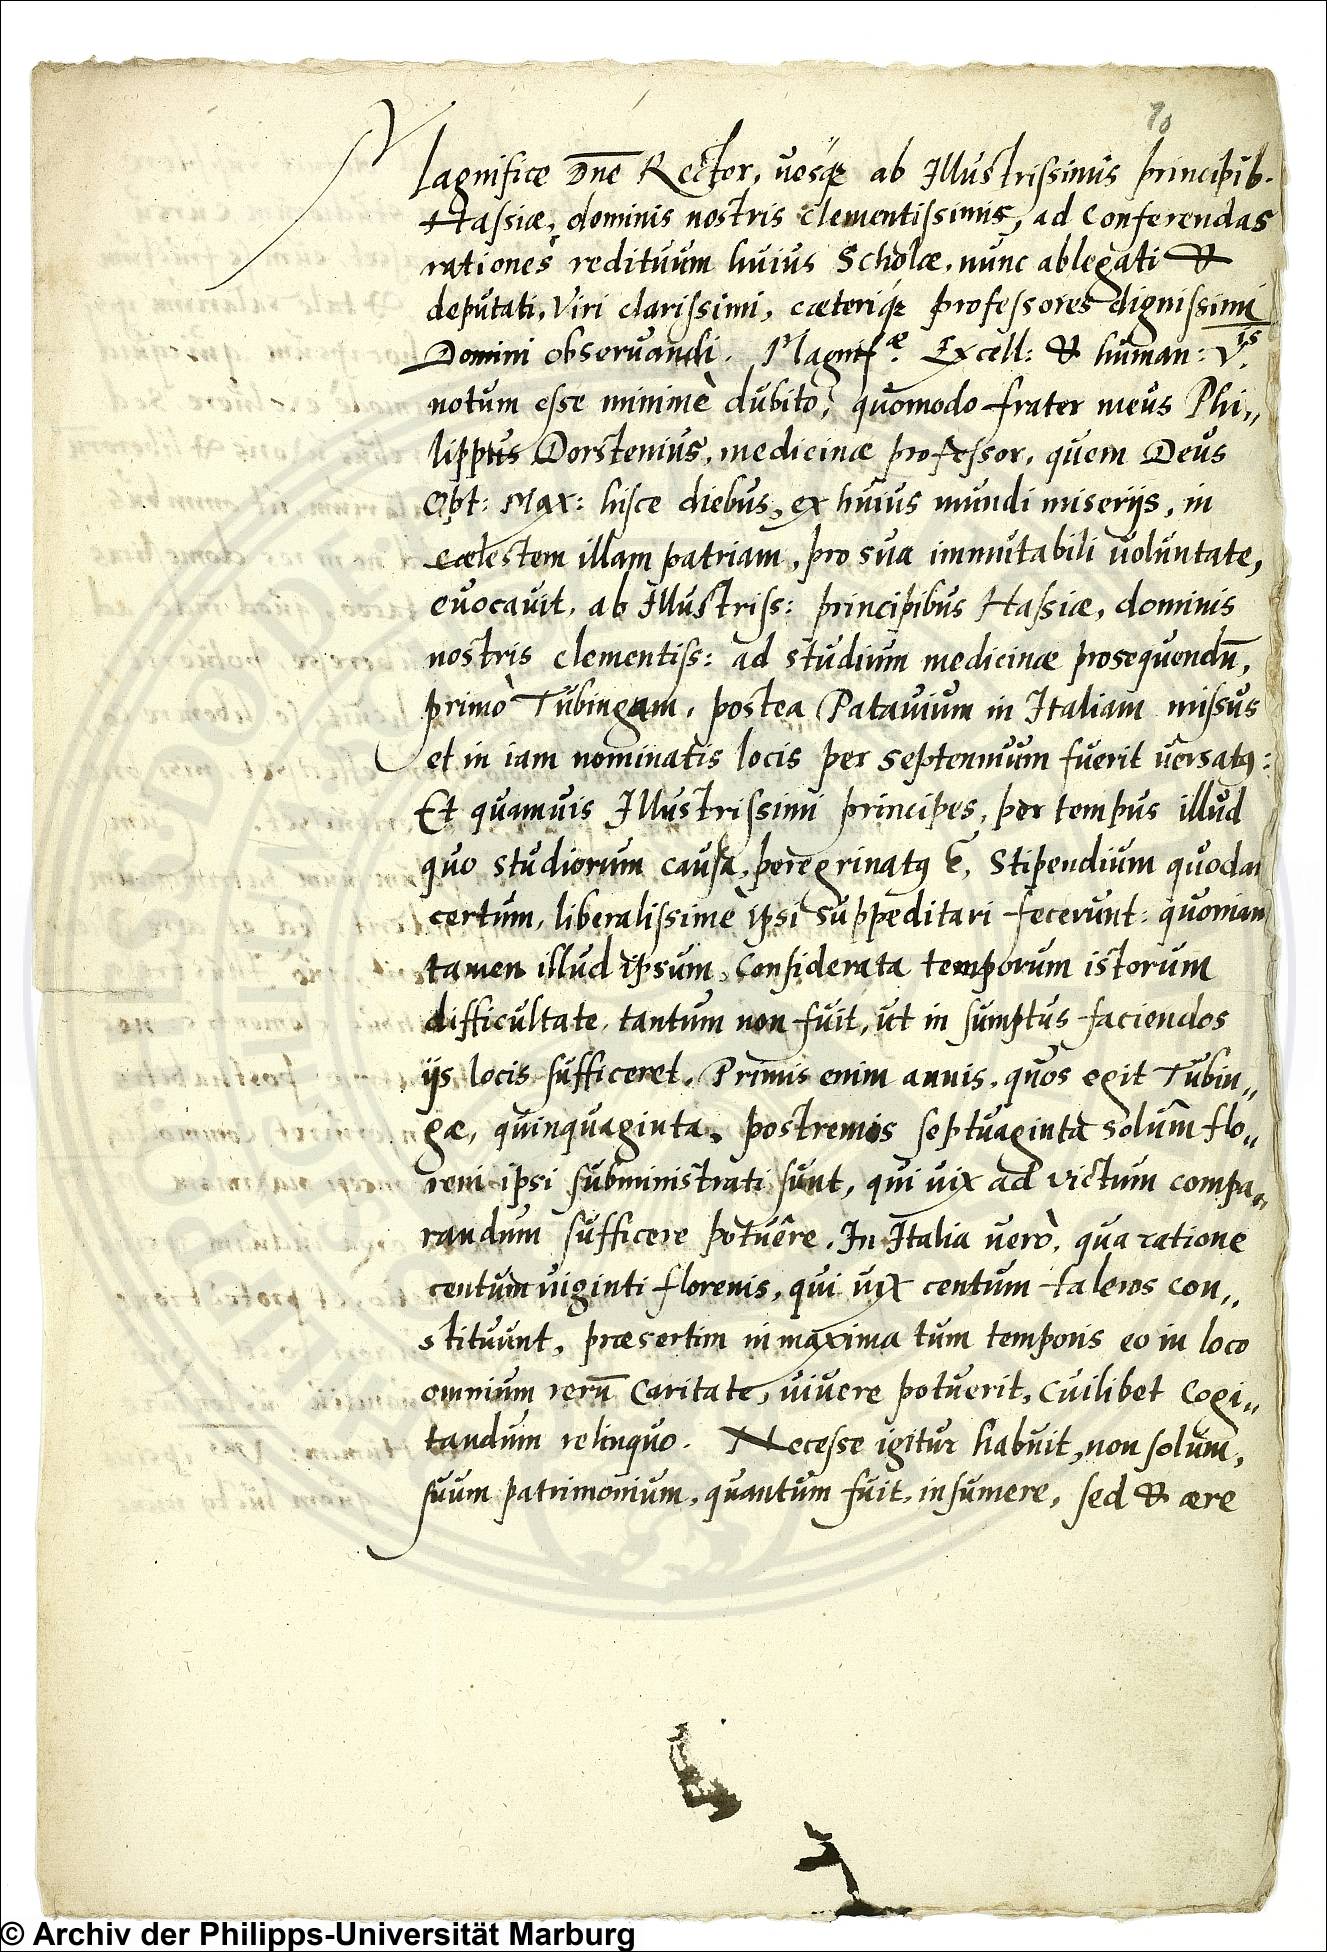 10
Magnifice Dne Rector, vosq; ab Illustrissimis principib.
Hassiæ, dominis nostris clementissimis, ad conferendas
rationes redituum huius Scholæ, nunc ablegati &
deputati, Viri clarissimi, cæteriq; professores dignissimi
Domini observandi. Magnif:æ Excell: & human: V.is
notum esse minimè dubito, quomodo frater meus Phi„
lippus Dorstenius, medicinæ professor, quem Deus
Opt: Max: hisce diebus, ex huius mundi miserijs, in
cælestem illam patriam, pro sua immutabili voluntate,
evocavit, ab Illustriss: principibus Hassiæ, dominis
nostris clementiss: ad studium medicinæ prosequendū,
primò Tubingam, postea Patavium in Italiam missus
et in iam nominatis locis per septennium fuerit versatq:
Et quamvis Illustrissimi principes, per tempus illud
quo studiorum causa, peregrinatq ē, stipendium quodam
certum, liberalissimè ipsi suppeditari fecerunt: quoniam
tamen illud ipsum, considerata temporum istorum
difficultate, tantum non fuit, ut in sumptus faciendos
ijs locis sufficeret. Primis enim annis, quos egit Tubin„
gæ, quinquaginta, postremis septuaginta solùm flo„
reni ipsi subministrati sunt, qui vix ad victum compa„
randum sufficere potuêre. In Italia verò, qua ratione
centum viginti florenis, qui vix centum taleros con„
stituunt, præsertim in maxima tum temporis eo in loco
omnium rerū caritate, vivere potuerit, cuilibet cogi„
tandum relinquo. Necesse igitur habuit, non solum,
suum patrimonium, quantum fuit, insumere, sed & ære
© Archiv der Philipps-Universität Marburg